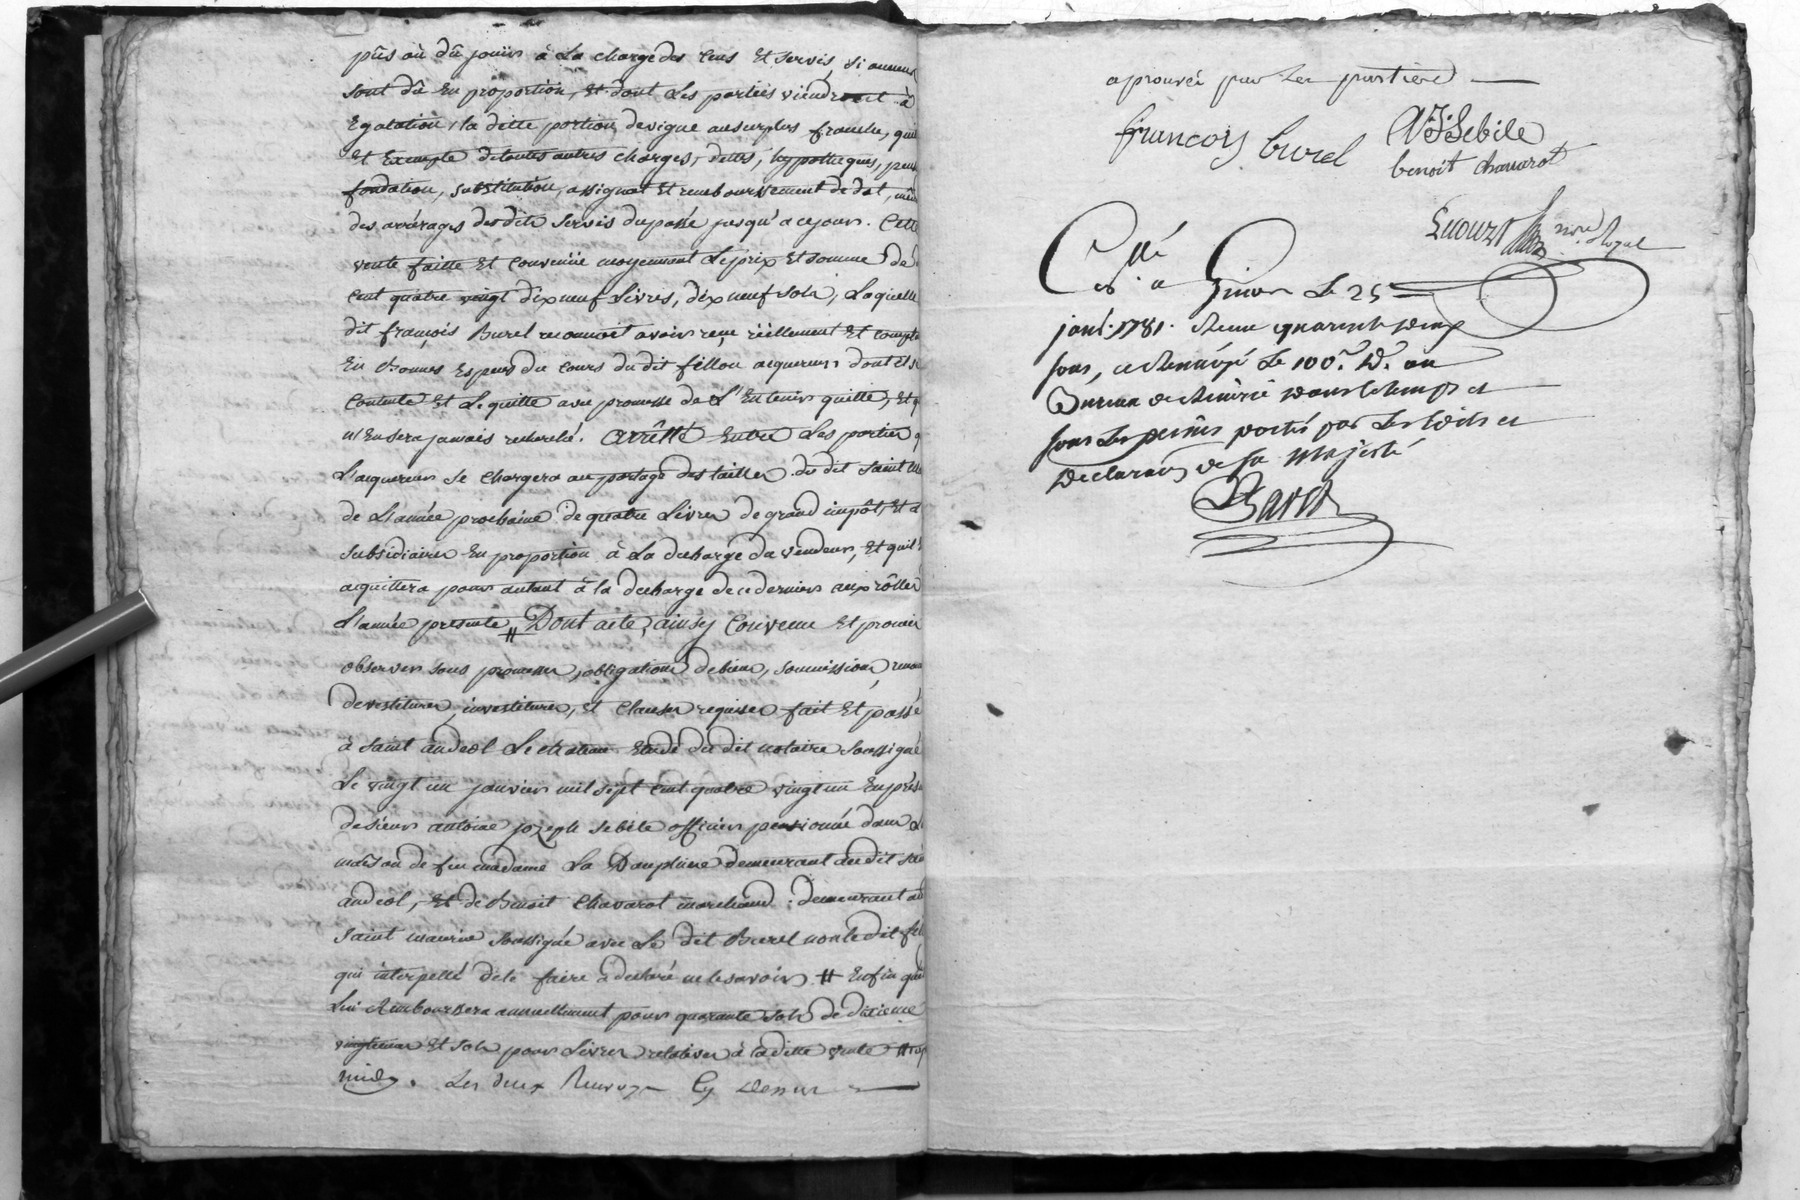 pûs où dû jouir à la charge des cens Et servis, si aucuns
sont dû En proportion, Et dont Les parties viendront à
Egalation, la ditte portion de vigne au surplus franche, quitte
Et Exempte de toutes autres charges, dettes, hypotheques,
fondation, substitution, assignat Et remboursement de dot,
des arrérages des dits servis du passé jusqu'a ce jour. Cette
vente faitte Et convenüe moyennant Le prix Et somme de
Cent quatre vingt dix neuf Livres, dix neuf sols, Laquelle
dit françois Burel reconnoit avoir reçu réellement Et compta
En bonnes Especes du cours du dit fillon acquereur dont il se
Contente Et Le quitte avec promesse de L'En tenir quitte, Et q
n'En sera jamais recherché. arrêtté Entre Les parties q
L'acquereur se chargera au partage des tailles du dit saint
de L'année prochaine de quatre Livres de grand impôt, Et d
subsidiaires En proportion à La decharge du vendeur, Et qu'il
acquittera pour autant à la decharge de ce dernier aux rôlles
L'année presente # Dont acte, ainsy Convenu Et promis
observer sous promesses, obligations de biens, soumissions,
devestitures, investitures, Et Clauses requises fait Et passé
à saint andeol Le chateau Etude du dit notaire soussigné
Le vingt un janvier mil sept Cent quatre vingt un En prés
de sieur antoine jozeph sebile officier pensionné dans L
maison de feu madame La Dauphine demeurant au dit st
andeol, Et de Benoit Chavarot marchand demeurant au
saint maurice soussignés avec Le dit Burel non le dit fil
qui interpellé de le faire a declaré ne le savoir # Enfin que
Lui Remboursera annuellement pour quarante sols de dixieme
vingtiemes Et sols pour Livres relatives à la ditte vente #
Les deux Renvoys Cy dessus
aprouvés par Les parties
françois burel A J Sebile
benoit chavarot
nore Royal
Collé
Con. a Givors Le 25
janv. 1781. Recu quarante deux
sous, et Renvoyé Le 100e. D. au
Bureau de Riverie dans le temps et
sous Les peines portés par Les Edits et
Declarations de Sa Majesté